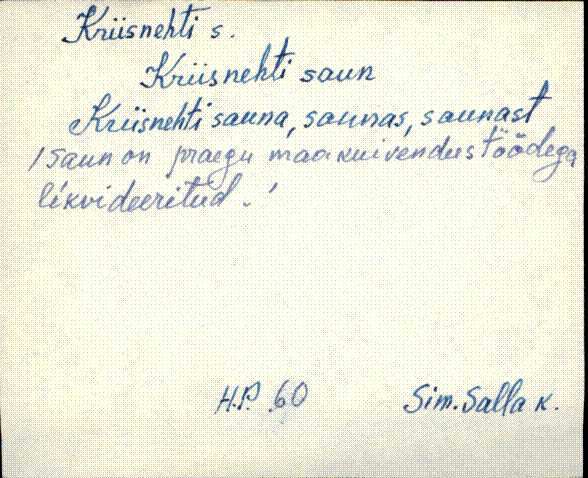 Kriisnehti s.
Kriisnehti saun
Kriisnehti sauna, saunas, saunast
/saun on praegu maakuivendustöödega
likvideeritud./
H.P. 60 Sim. Salla k.